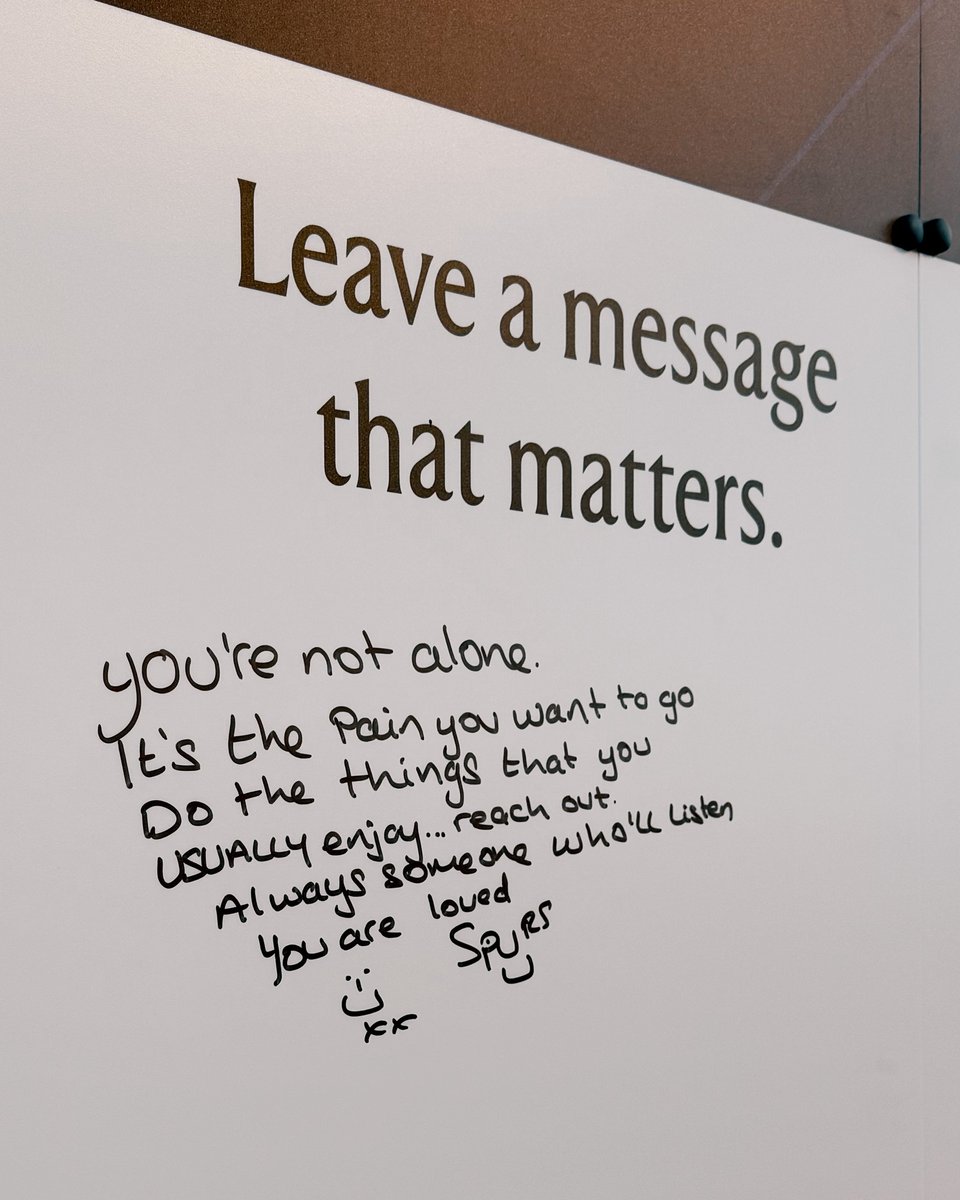 Leave a message
that matters.
you're not alone.
It's the Pain you want to go
Do the things that you
USUALLY enjoy... reach out.
Always someone who'll Listen
You are loved
xx